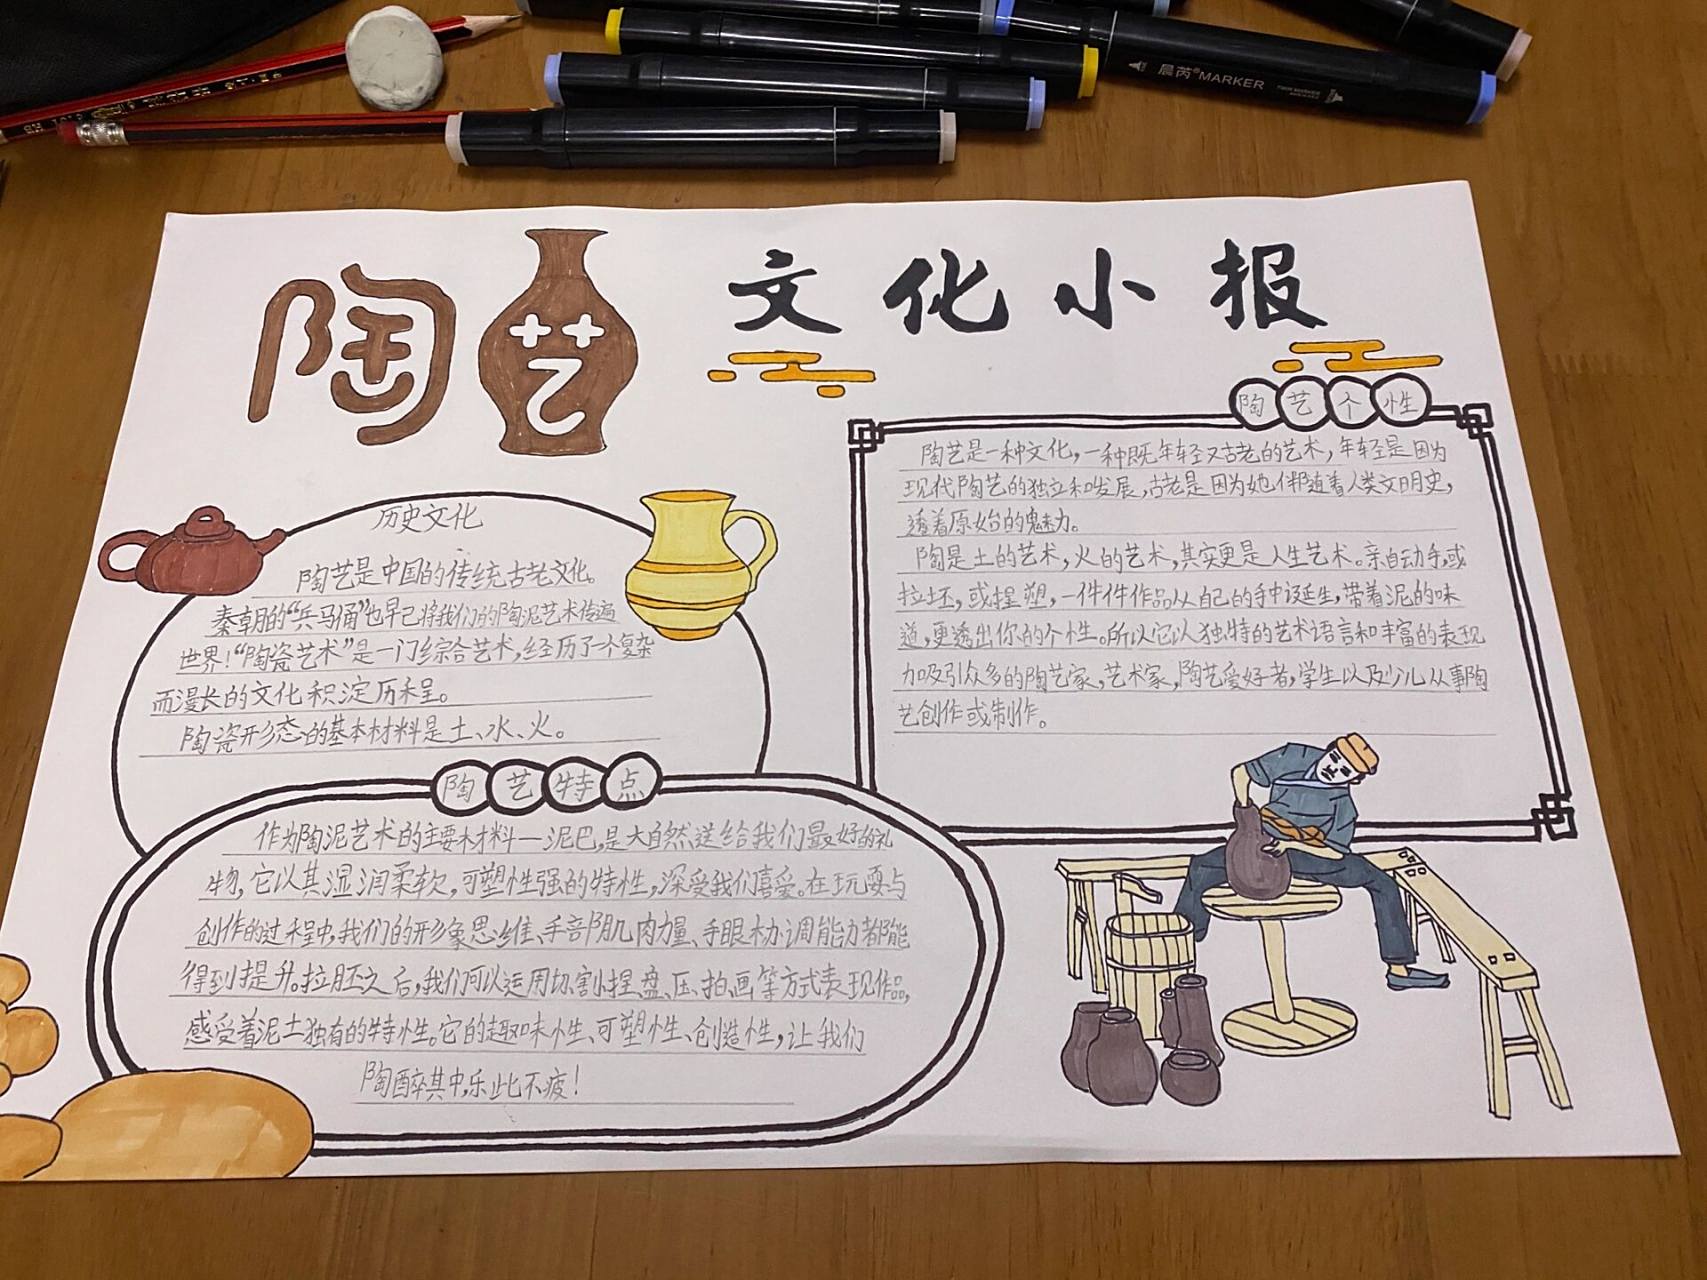 晨芮®MARKER
陶艺 文化小报
历史文化
陶艺是中国的传统古老文化。
秦朝的“兵马俑”也早已将我们的陶泥艺术传遍
世界！“陶瓷艺术”是一门综合艺术，经历了一个复杂
而漫长的文化积淀历程。
陶瓷形态的基本材料是土、水、火。
陶艺个性
陶艺是一种文化，一种既年轻又古老的艺术，年轻是因为
现代陶艺的独立和发展，古老是因为她伴随着人类文明史，
透着原始的魅力。
陶是土的艺术，火的艺术，其实更是人生艺术。亲自动手，或
拉坯，或捏塑，一件件作品从自己的手中诞生，带着泥的味
道，更透出你的个性。所以它以独特的艺术语言和丰富的表现
力吸引众多的陶艺家，艺术家，陶艺爱好者，学生以及少儿从事陶
艺创作或制作。
陶艺特点
作为陶泥艺术的主要材料一泥巴，是大自然送给我们最好的礼
物，它以其湿润柔软，可塑性强的特性，深受我们喜爱。在玩耍与
创作的过程中，我们的形象思维、手部肌肉力量、手眼协调能力都能
得到提升。拉胚之后，我们可以运用切、割、捏、盘、压、拍、画等方式表现作品，
感受着泥土独有的特性。它的趣味性、可塑性、创造性，让我们
陶醉其中，乐此不疲！